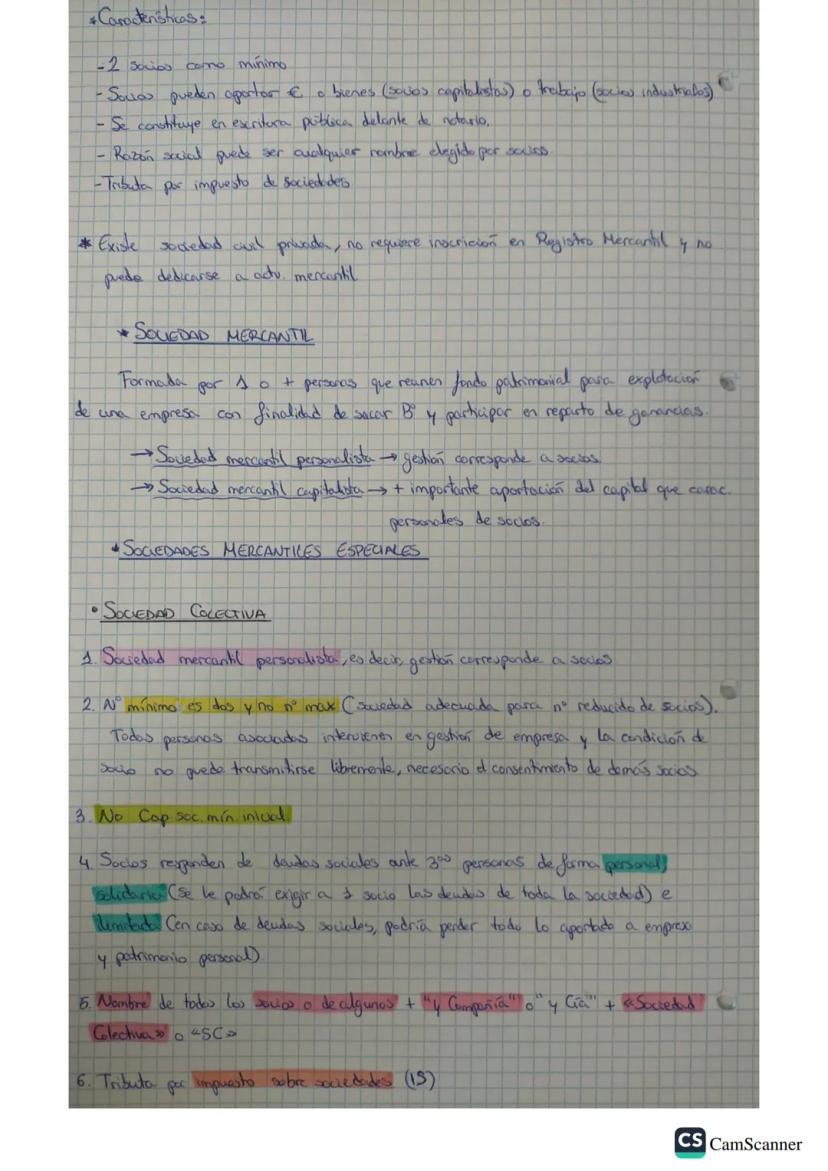 * Características:
- 2 socios como mínimo
- Socios pueden aportar € o bienes (socios capitalistas) o trabajo (socios industriales)
- Se constituye en escritura pública delante de notario.
- Razón social puede ser cualquier nombre elegido por socios
- Tributa por impuesto de sociedades
* Existe sociedad civil privada, no requiere inscrición en Registro Mercantil y no
puede dedicarse a actv. mercantil
* SOCIEDAD MERCANTIL
Formada por 1 o + personas que reunen fondo patrimonial para explotación
de una empresa con finalidad de sacar Bº y participar en reparto de ganancias.
→ Sociedad mercantil personalista → gestión corresponde a socios
→ Sociedad mercantil capitalista → + importante aportación del capital que carac.
personales de socios.
* SOCIEDADES MERCANTILES ESPECIALES
• SOCIEDAD COLECTIVA
1. Sociedad mercantil personalista, es decir, gestión corresponde a socios
2. Nº mínimo es dos y no nº max (sociedad adecuada para nº reducido de socios).
Todas personas asociadas intervienen en gestión de empresa y la condición de
socio no puede transmitirse libremente, necesario el consentimiento de demás socios
3. No Cap soc. mín. inicial
4. Socios responden de deudas sociales ante 3ªˢ personas de forma personal,
solidaria (se le podrá exigir a 1 socio las deudas de toda la sociedad) e
ilimitada (en caso de deudas sociales, podría perder todo lo aportado a empresa
y patrimonio personal)
5. Nombre de todos los socios o de algunos + "y Compañía" o "y Cía" + «Sociedad
Colectiva» o «SC»
6. Tributa por impuesto sobre sociedades (IS)
CS CamScanner